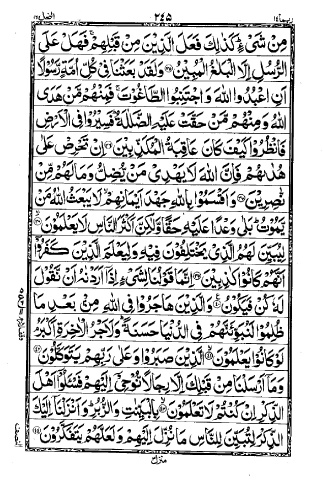 النحل ١٦ ٢٤٥ ربما ١٤
مِنْ شَىْءٍ ؕ كَذٰلِكَ فَعَلَ الَّذِيْنَ مِنْ قَبْلِهِمْ ۚ فَهَلْ عَلَى
الرُّسُلِ اِلَّا الْبَلٰغُ الْمُبِيْنُ ۝٣٥ وَلَقَدْ بَعَثْنَا فِىْ كُلِّ اُمَّةٍ رَّسُوْلًا
اَنِ اعْبُدُوا اللّٰهَ وَاجْتَنِبُوا الطَّاغُوْتَ ۚ فَمِنْهُمْ مَّنْ هَدَى
اللّٰهُ وَمِنْهُمْ مَّنْ حَقَّتْ عَلَيْهِ الضَّلٰلَةُ ؕ فَسِيْرُوْا فِى الْاَرْضِ
فَانْظُرُوْا كَيْفَ كَانَ عَاقِبَةُ الْمُكَذِّبِيْنَ ۝٣٦ اِنْ تَحْرِصْ عَلٰى
هُدٰىهُمْ فَاِنَّ اللّٰهَ لَا يَهْدِىْ مَنْ يُّضِلُّ وَمَا لَهُمْ مِّنْ
نّٰصِرِيْنَ ۝٣٧ وَاَقْسَمُوْا بِاللّٰهِ جَهْدَ اَيْمَانِهِمْ ۙ لَا يَبْعَثُ اللّٰهُ مَنْ
يَّمُوْتُ ؕ بَلٰى وَعْدًا عَلَيْهِ حَقًّا وَّلٰكِنَّ اَكْثَرَ النَّاسِ لَا يَعْلَمُوْنَ ۝٣٨
لِيُبَيِّنَ لَهُمُ الَّذِىْ يَخْتَلِفُوْنَ فِيْهِ وَلِيَعْلَمَ الَّذِيْنَ كَفَرُوْٓا
اَنَّهُمْ كَانُوْا كٰذِبِيْنَ ۝٣٩ اِنَّمَا قَوْلُنَا لِشَىْءٍ اِذَآ اَرَدْنٰهُ اَنْ نَّقُوْلَ
لَهٗ كُنْ فَيَكُوْنُ ۝٤٠ وَالَّذِيْنَ هَاجَرُوْا فِى اللّٰهِ مِنْۢ بَعْدِ مَا
ظُلِمُوْا لَنُبَوِّئَنَّهُمْ فِى الدُّنْيَا حَسَنَةً ؕ وَلَاَجْرُ الْاٰخِرَةِ اَكْبَرُ ۘ
لَوْ كَانُوْا يَعْلَمُوْنَ ۝٤١ الَّذِيْنَ صَبَرُوْا وَعَلٰى رَبِّهِمْ يَتَوَكَّلُوْنَ ۝٤٢
وَمَآ اَرْسَلْنَا مِنْ قَبْلِكَ اِلَّا رِجَالًا نُّوْحِىْٓ اِلَيْهِمْ فَسْـَٔلُوْٓا اَهْلَ
الذِّكْرِ اِنْ كُنْتُمْ لَا تَعْلَمُوْنَ ۝٤٣ بِالْبَيِّنٰتِ وَالزُّبُرِ ؕ وَاَنْزَلْنَآ اِلَيْكَ
الذِّكْرَ لِتُبَيِّنَ لِلنَّاسِ مَا نُزِّلَ اِلَيْهِمْ وَلَعَلَّهُمْ يَتَفَكَّرُوْنَ ۝٤٤
منزل ٣
النصف